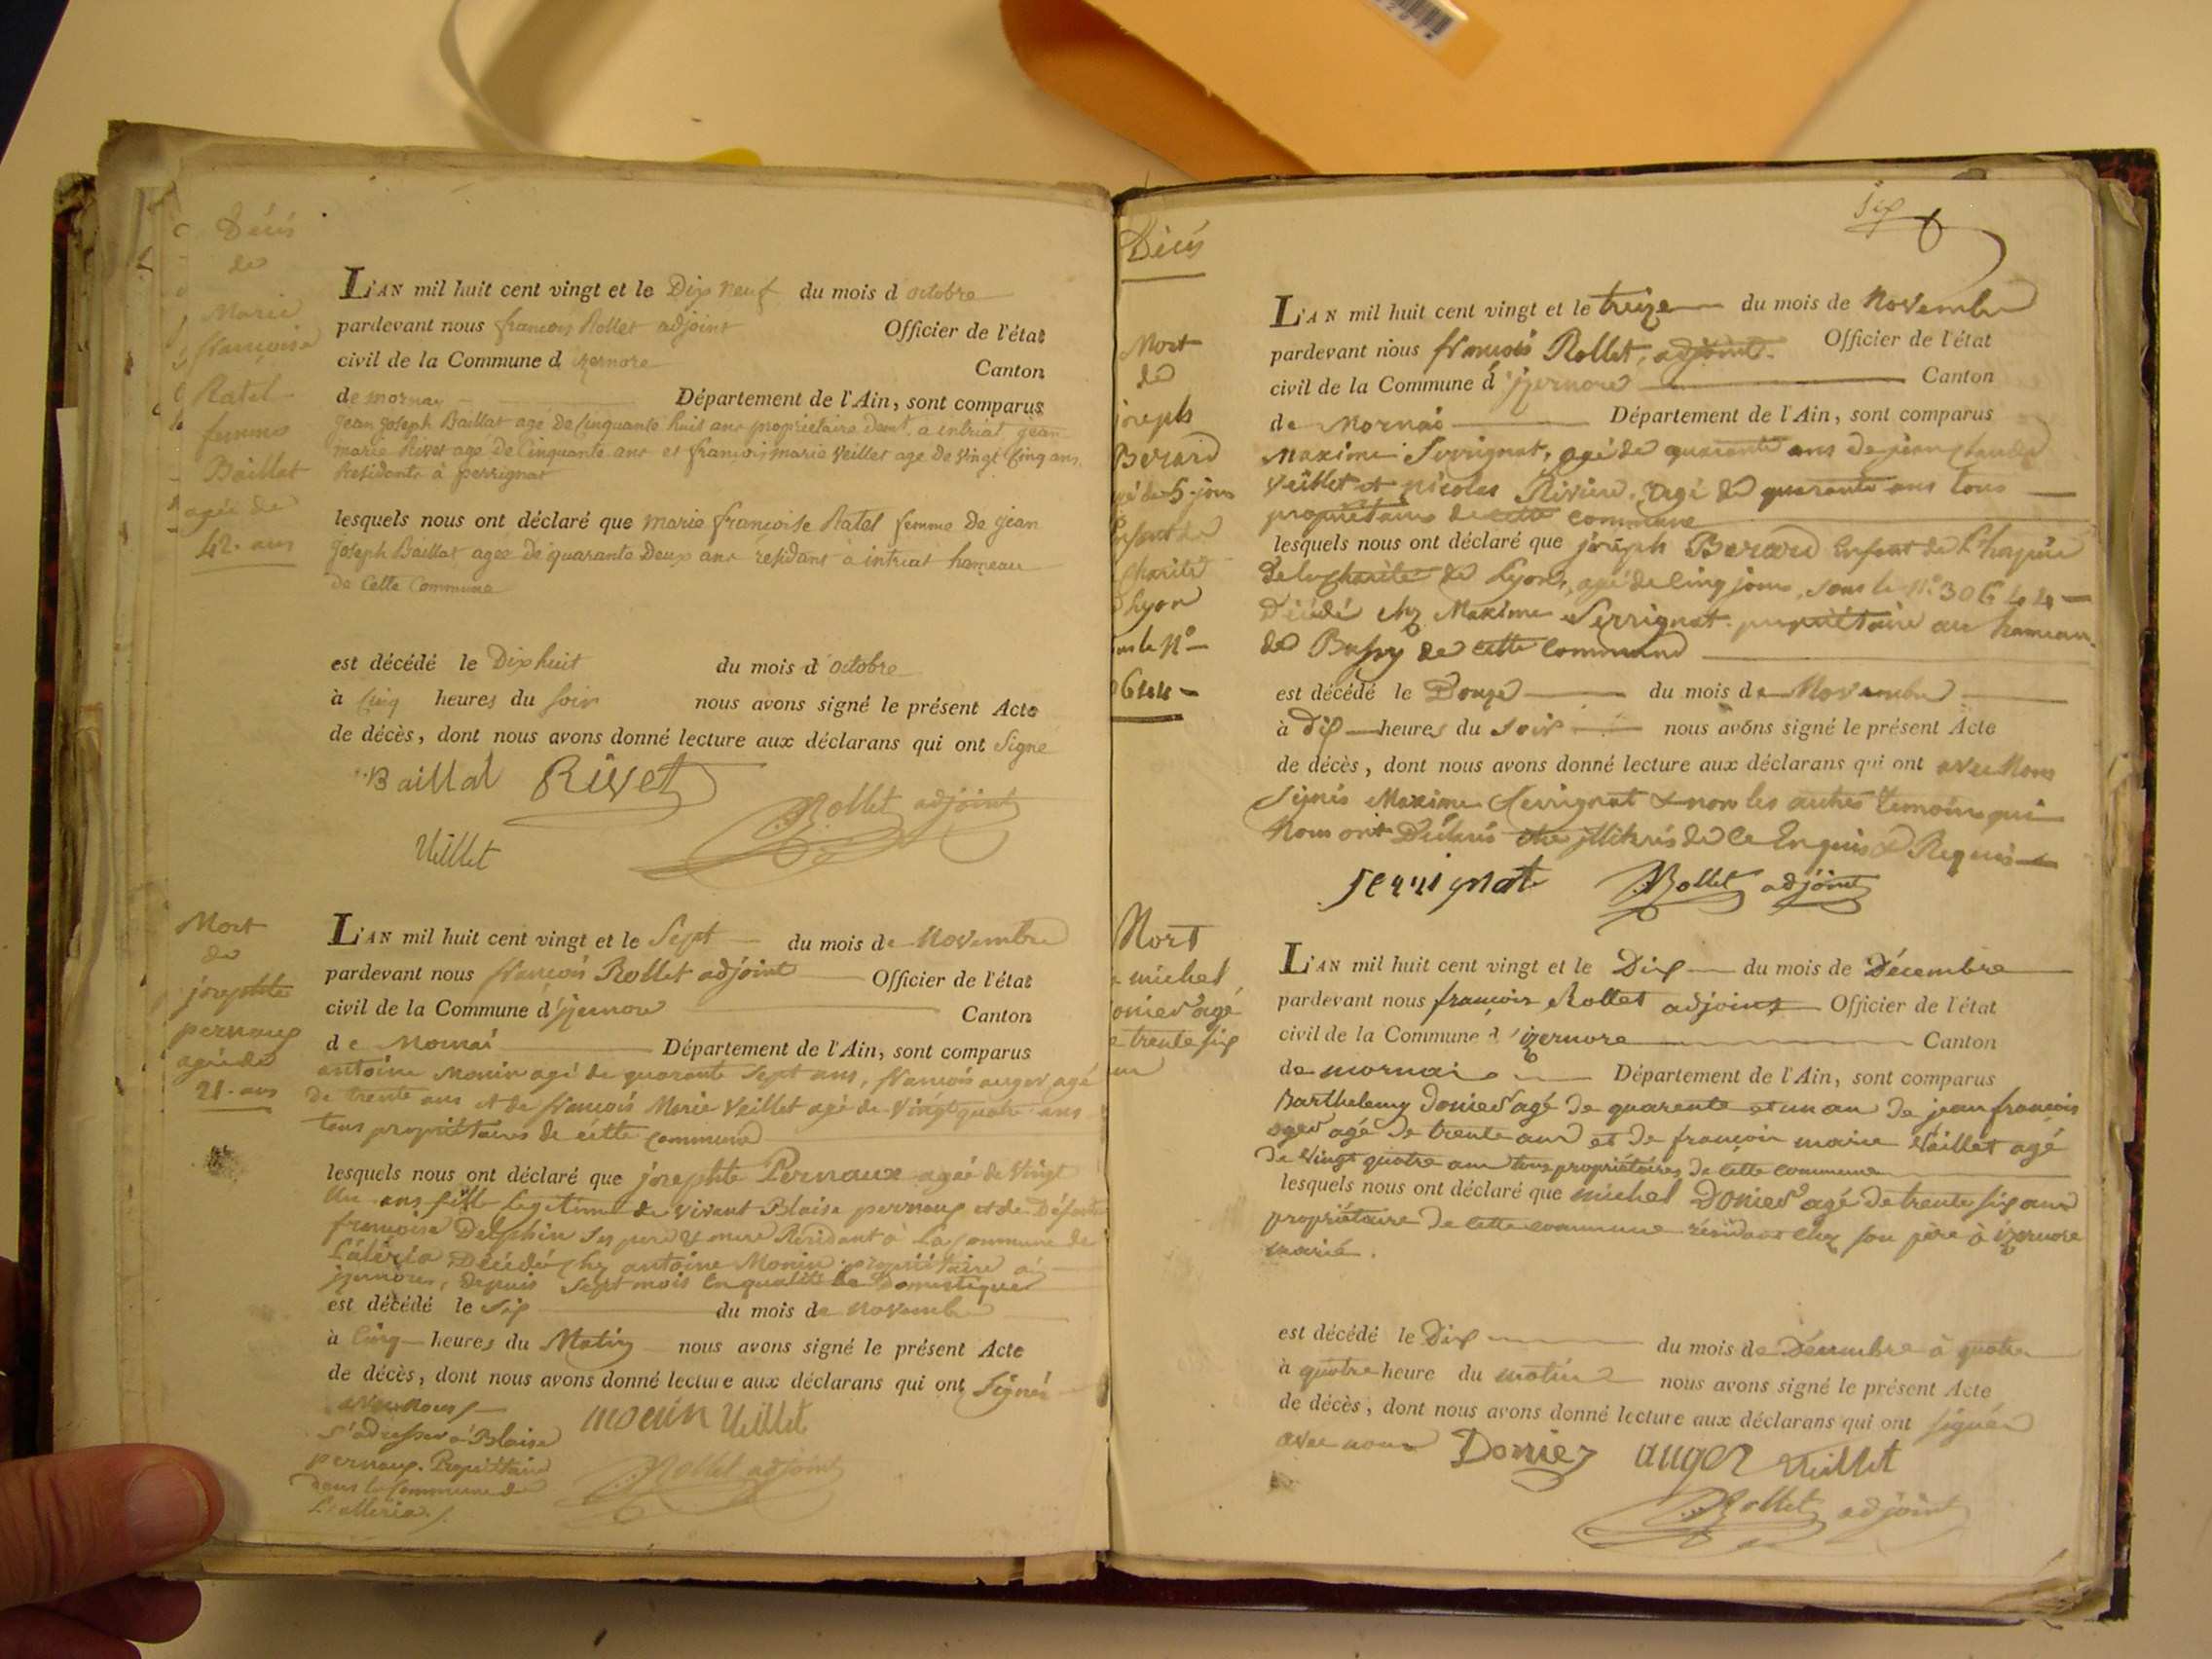 Décès
de
Marie
françoise
Ratel
femme
Baillat
agée de
42. ans
L'AN mil huit cent vingt et le Dix neuf du mois d octobre
pardevant nous françois Rollet adjoint Officier de l'état
civil de la Commune d izernore Canton
de mornay Département de l'Ain, sont comparus
jean joseph Baillat age de Cinquante huit ans propriétaire demt. a intriat, jean
marie Rivet agé de Cinquante ans et françois marie Veillet age de Vingt Cinq ans,
Residants à perrignat
lesquels nous ont déclaré que marie françoise Ratel femme de jean
joseph Baillat agée de quarante Deux ans residant à intriat hameau
de Cette Commune
est décédé le Dix huit du mois d octobre
à Cinq heures du soir nous avons signé le présent Acte
de décès, dont nous avons donné lecture aux déclarans qui ont Signé
Baillat Rivet
Rollet adjoint
Veillet
Mort
de
josephte
pernoux
agée de
21. ans
L'AN mil huit cent vingt et le Sept du mois de Novembre
pardevant nous françois Rollet adjoint Officier de l'état
civil de la Commune d'jzernore Canton
de Mornai Département de l'Ain, sont comparus
antoine Monin agé de quarante Sept ans, françois auger agé
de trente ans et de françois Marie Veillet agé de Vingt quatre ans
tous propriétaires de cette commune
lesquels nous ont déclaré que josephte Pernoux agée de Vingt
Un ans fille legitime de vivant Blaise pernoux et de Defunte
françoise Delphin ses pere & mere Résidant à La Commune de
Lalleria Décédé chz antoine Monin propriétaire a
jzernore, depuis Sept mois En qualité de Domestique
est décédé le Six du mois de novembre
à Cinq heures du Matin nous avons signé le présent Acte
de décès, dont nous avons donné lecture aux déclarans qui ont Signés
avec Nous
s'adresser à Blaise
pernoux. Propriétaire
dans la Commune de
Lalleria
monin Veillet
Rollet adjoint
six
Décès
Mort
de
joseph
Berard
agé de 5 jours
Enfant de
charité
Lyon
sous le N°
644
L'AN mil huit cent vingt et le treize du mois de Novembre
pardevant nous françois Rollet, adjoint. Officier de l'état
civil de la Commune d'jzernore Canton
de Mornai Département de l'Ain, sont comparus
Maxime Serrignat, agé de quarante ans de jean Claude
Veillet et nicolas Riviere, agé de quarante ans tous
propriétaires de cette commune
lesquels nous ont déclaré que joseph Berard Enfant de l'hospice
De la charité de Lyon, agé de Cinq jours, sous le N° 30644
Décédé chz Maxime Serrignat propriétaire au hameau
de Bussy de cette Commune
est décédé le Douze du mois de Novembre
à Dix heures du soir nous avons signé le présent Acte
de décès, dont nous avons donné lecture aux déclarans qui ont avec Nous
Signés Maxime Serrignat & non les autres temoins qui
Nous ont Déclarés être jllitérés de ce Enquis & Requis
serrignat Rollet adjoint
Mort
michel
agé
trente six
L'AN mil huit cent vingt et le Dix du mois de Décembre
pardevant nous françois Rollet adjoint Officier de l'état
civil de la Commune d'izernore Canton
de mornai Département de l'Ain, sont comparus
Barthelemy Doniez agé de quarente et un an de jean françois
oger agé de trente ans et de françois marie Veillet agé
de Vingt quatre ans tous propriétaires de cette commune
lesquels nous ont déclaré que michel Doniez agé de trente six ans
propriétaire de cette commune résidant chez son père à izernore
marié.
est décédé le Dix du mois de Décembre à quatre
à quatre heure du matin nous avons signé le présent Acte
de décès, dont nous avons donné lecture aux déclarans qui ont signés
avec nous Doniez auger Veillet
Rollet adjoint